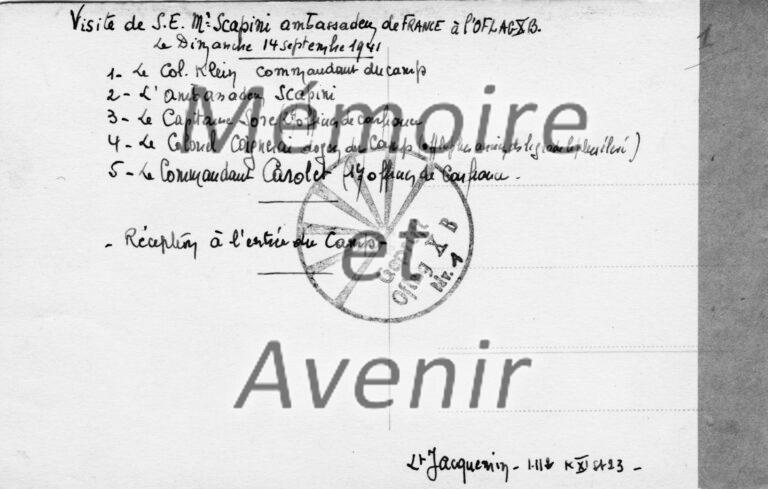 Visite de S.E. Mr Scapini ambassadeur de FRANCE à l'OFLAG XB.
Le Dimanche 14 septembre 1941
1
1- Le Col. Klein commandant du camp
2- L'ambassadeur Scapini
3- Le Capitaine officier de confiance
4- Le Colonel doyen du Camp
5- Le Commandant officier de Confiance.
- Réception à l'entrée du Camp -
Geprüft
Oflag X B
Nr. 1
Mémoire
et
Avenir
Lt Jacquemin -